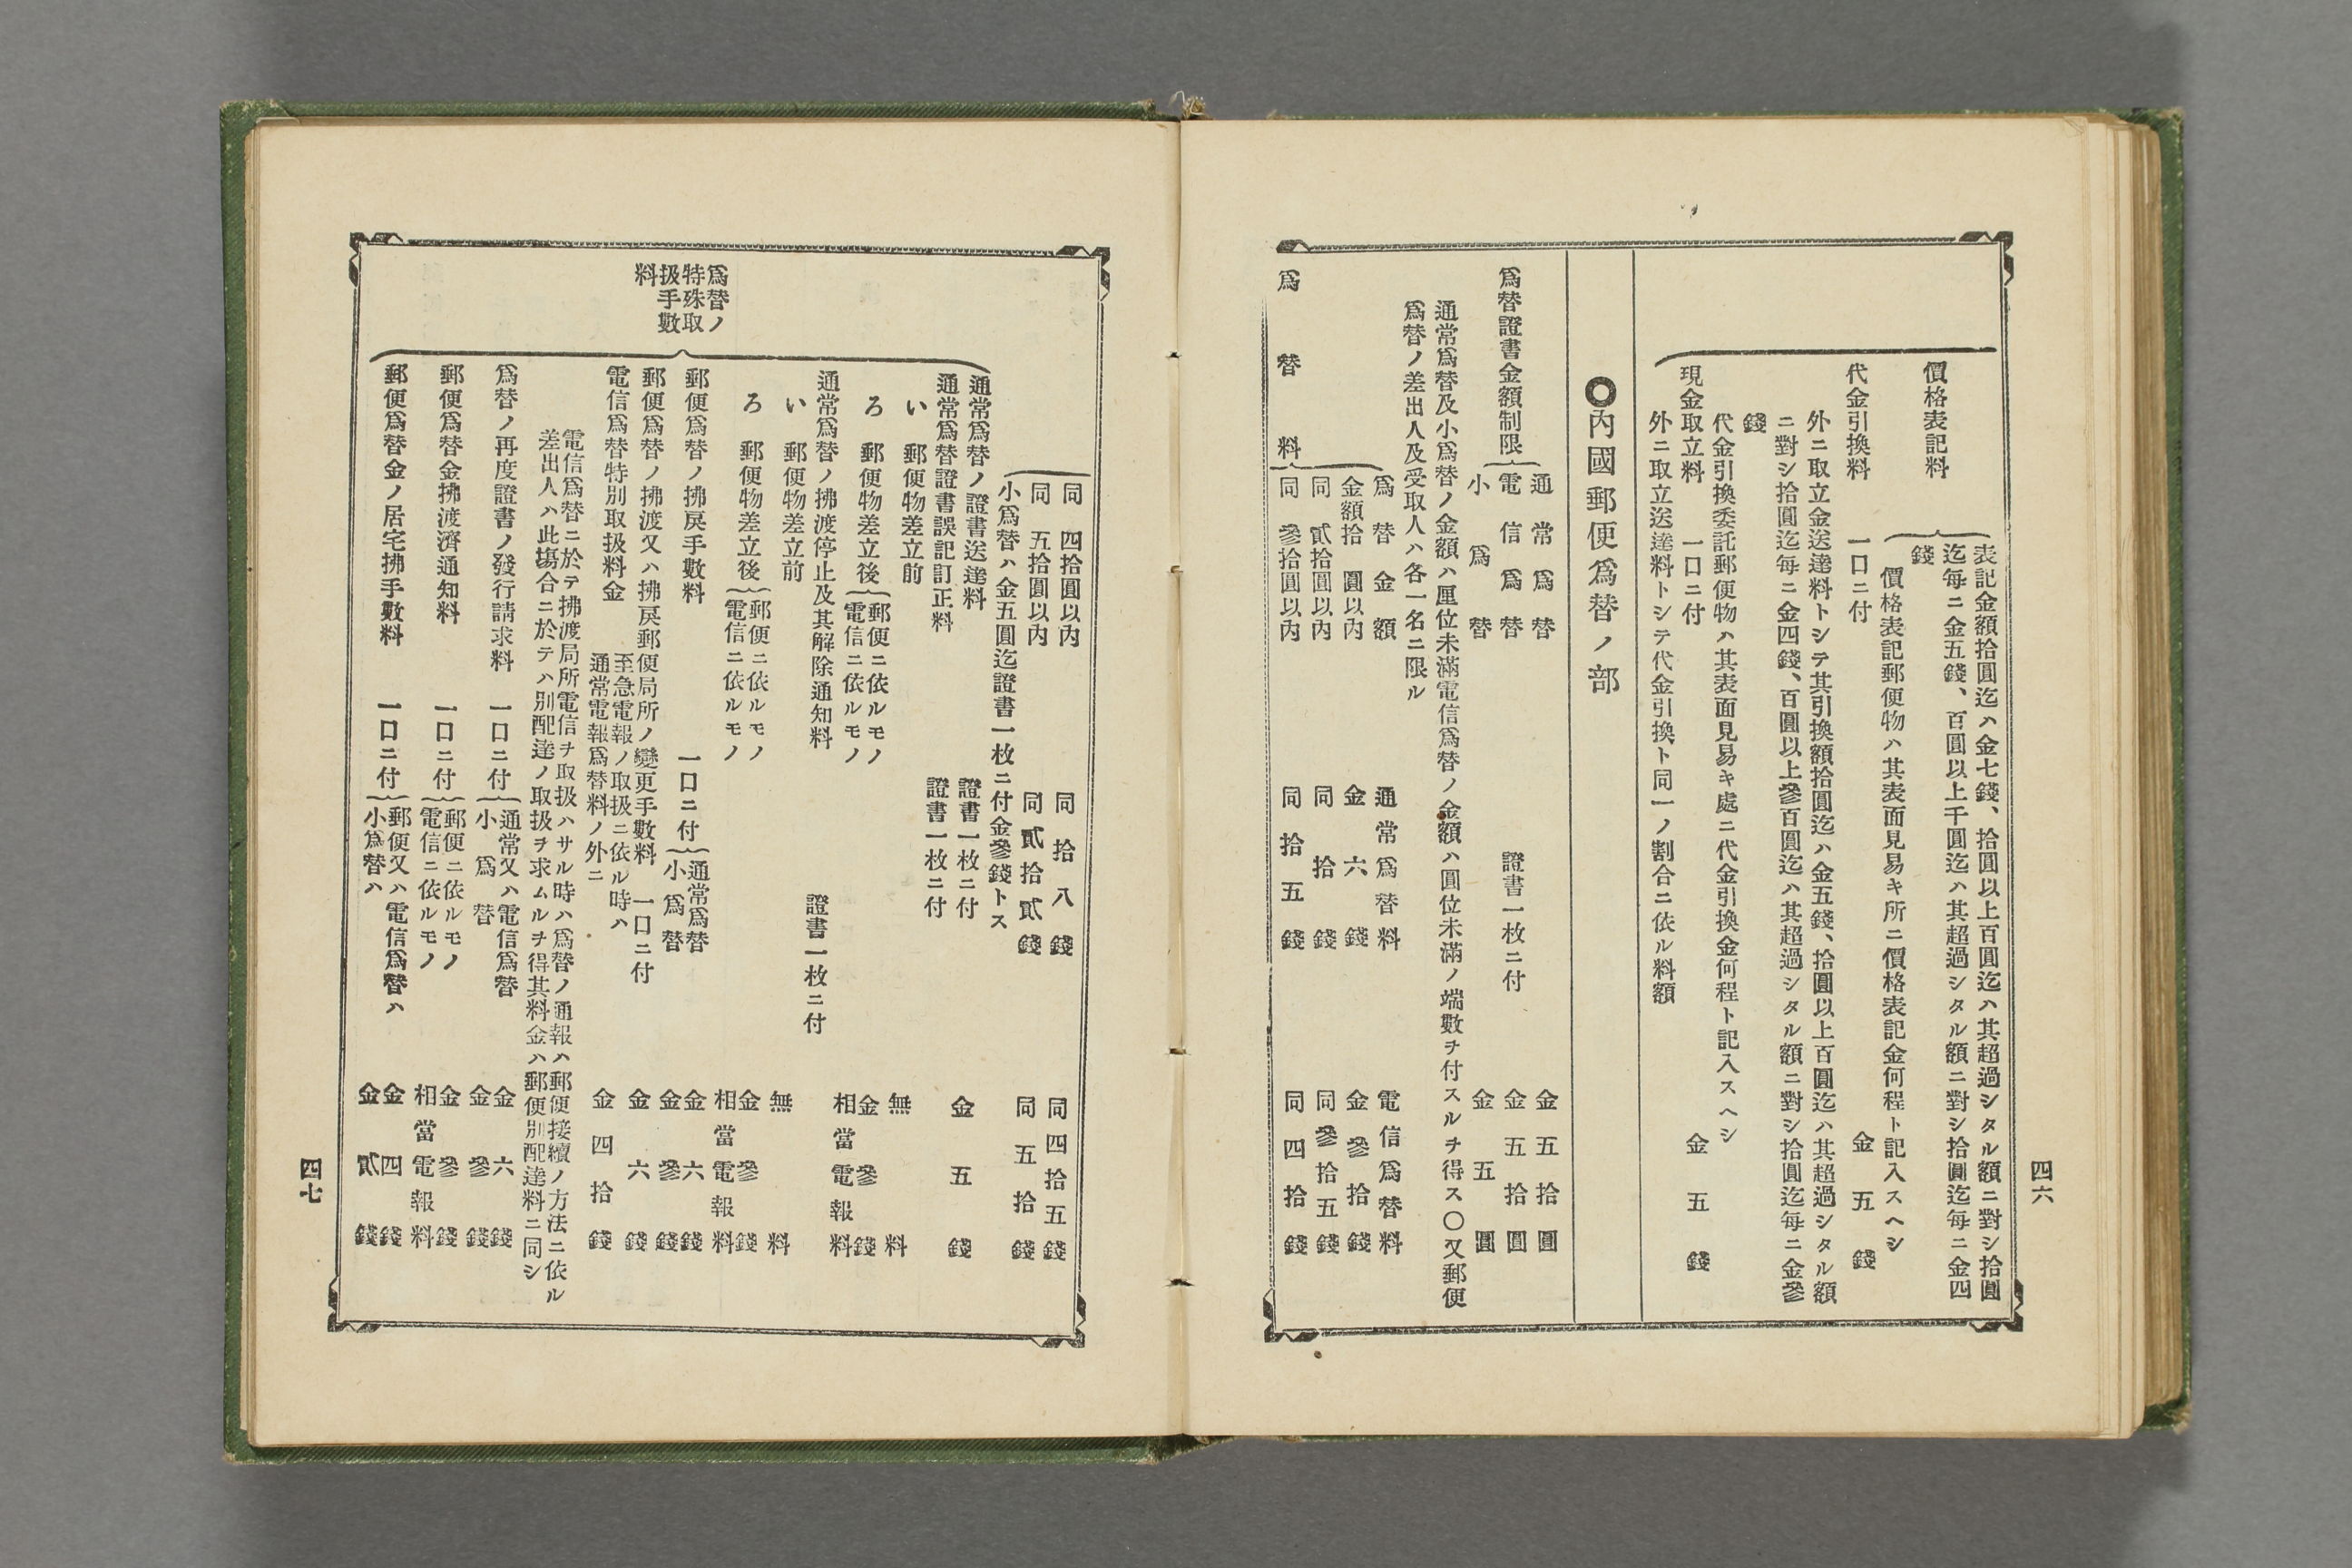 四六
價格表記料
表記金額拾圓迄ハ金七錢、拾圓以上百圓迄ハ其超過シタル額ニ對シ拾圓
迄每ニ金五錢、百圓以上千圓迄ハ其超過シタル額ニ對シ拾圓迄每ニ金四
錢
價格表記郵便物ハ其表面見易キ所ニ價格表記金何程ト記入スヘシ
代金引換料 一口ニ付 金五錢
外ニ取立金送達料トシテ其引換額拾圓迄ハ金五錢、拾圓以上百圓迄ハ其超過シタル額
ニ對シ拾圓迄每ニ金四錢、百圓以上參百圓迄ハ其超過シタル額ニ對シ拾圓迄每ニ金參
錢
代金引換委託郵便物ハ其表面見易キ處ニ代金引換金何程ト記入スヘシ
現金取立料 一口ニ付 金五錢
外ニ取立送達料トシテ代金引換ト同一ノ割合ニ依ル料額
○內國郵便爲替ノ部
爲替證書金額制限
通常爲替 金五拾圓
電信爲替 證書一枚ニ付 金五拾圓
小爲替 金五圓
通常爲替及小爲替ノ金額ハ厘位未滿電信爲替ノ金額ハ圓位未滿ノ端數ヲ付スルヲ得ス○又郵便
爲替ノ差出人及受取人ハ各一名ニ限ル
爲替料
爲替金額 通常爲替料 電信爲替料
金額拾圓以內 金六錢 金參拾錢
同貳拾圓以內 同拾錢 同參拾五錢
同參拾圓以內 同拾五錢 同四拾錢
同四拾圓以內 同拾八錢 同四拾五錢
同五拾圓以內 同貳拾貳錢 同五拾錢
小爲替ハ金五圓迄證書一枚ニ付金參錢トス
爲替ノ
特殊取
扱手數
料
通常爲替ノ證書送達料 證書一枚ニ付 金五錢
通常爲替證書誤記訂正料 證書一枚ニ付
い 郵便物差立前 無料
ろ 郵便物差立後
郵便ニ依ルモノ 金參錢
電信ニ依ルモノ 相當電報料
通常爲替ノ拂渡停止及其解除通知料 證書一枚ニ付
い 郵便物差立前 無料
ろ 郵便物差立後
郵便ニ依ルモノ 金參錢
電信ニ依ルモノ 相當電報料
郵便爲替ノ拂戾手數料 一口ニ付
通常爲替 金六錢
小爲替 金參錢
郵便爲替ノ拂渡又ハ拂戾郵便局所ノ變更手數料 一口ニ付 金六錢
電信爲替特別取扱料金
至急電報ノ取扱ニ依ル時ハ
通常電報爲替料ノ外ニ 金四拾錢
電信爲替ニ於テ拂渡局所電信ヲ取扱ハサル時ハ爲替ノ通報ハ郵便接續ノ方法ニ依ル
差出人ハ此塲合ニ於テハ別配達ノ取扱ヲ求ムルヲ得其料金ハ郵便別配達料ニ同シ
爲替ノ再度證書ノ發行請求料 一口ニ付
通常又ハ電信爲替 金六錢
小爲替 金參錢
郵便爲替金拂渡濟通知料 一口ニ付
郵便ニ依ルモノ 金參錢
電信ニ依ルモノ 相當電報料
郵便爲替金ノ居宅拂手數料 一口ニ付
郵便又ハ電信爲替ハ 金四錢
小爲替ハ 金貳錢
四七